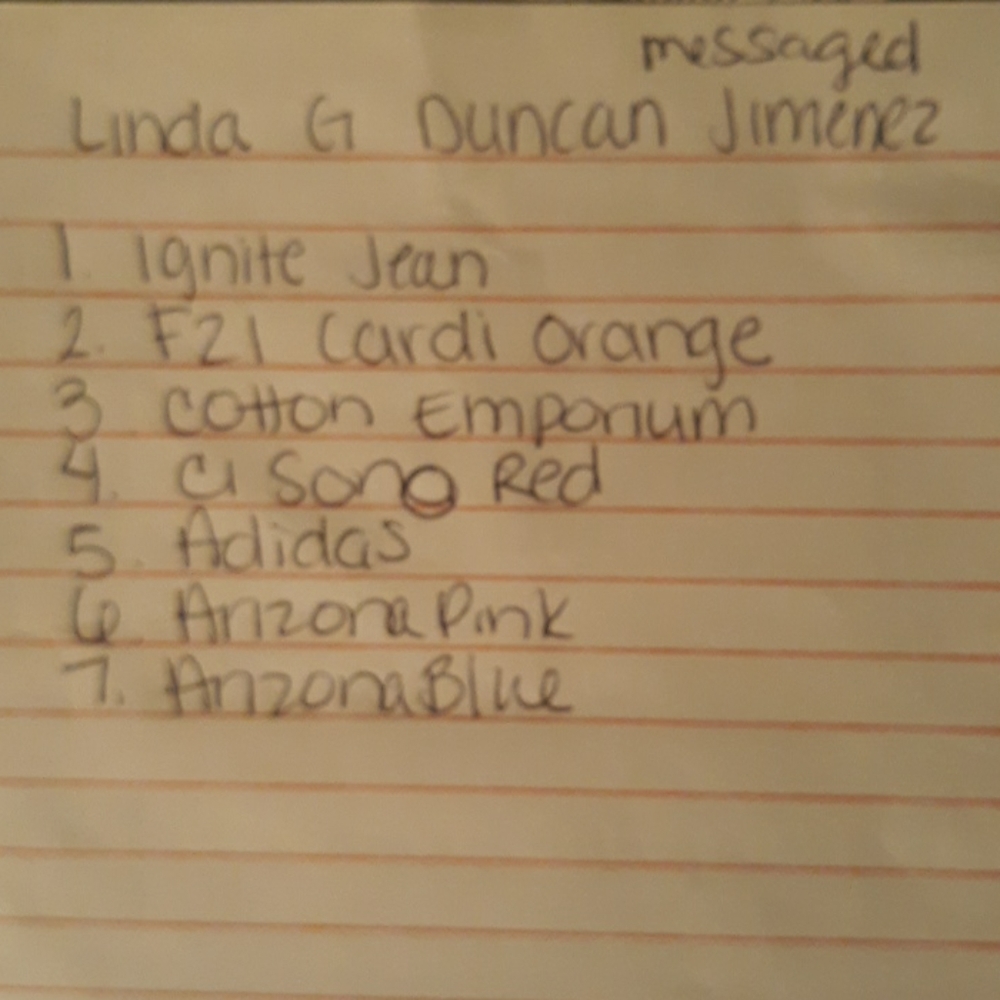 messaged
Linda G Duncan Jimenez
1. Ignite Jean
2. F21 Cardi Orange
3 Cotton Emporium
4. CJ Song Red
5. Adidas
6. Arizona Pink
7. Arizona Blue